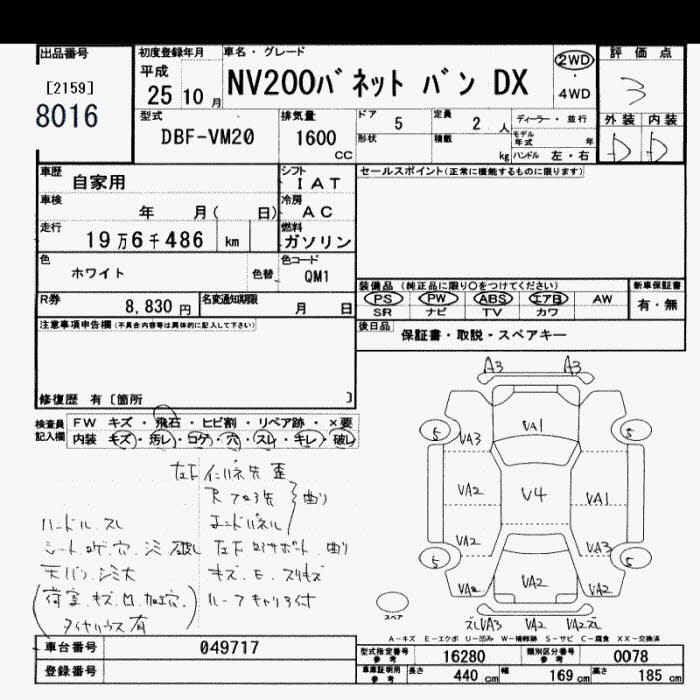 出品番号 初度登録年月 車名・グレード 評価点
[2159] 平成 NV200バネット バン DX 2WD 3
8016 25 10 月 ・4WD
型式 排気量 ドア 定員 ディーラー・並行 外装 内装
DBF-VM20 1600 CC 5 2 人 モデル年式 年 D D
形状 積載 kg ハンドル 左・右
車歴 自家用 シフト IAT セールスポイント(正常に機能するものに限ります)
車検 年 月( 日) 冷房 AC
走行 19万6千486 km 燃料 ガソリン
色 ホワイト 色替 色コード QM1
装備品(純正品に限り○をつけてください) 新車保証書
R券 8,830円 名変通知期限 月 日 PS PW ABS エアB AW 有・無
SR ナビ TV カワ
注意事項申告欄(不具合内容等は具体的に記入して下さい) 後日品 保証書・取説・スペアキー
修復歴 有〔箇所 〕
検査員記入欄 FW キズ・飛石・ヒビ割・リペア跡・×要
内装 キズ・汚レ・コゲ・穴・スレ・キレ・破レ
A3 A3
5 VA3 VA1 5
VA2 V4 VA1
VA2 VA3
5 VA2 VA2 VA2 5
ズレVA3 VA2 VA2ズレ
左F インパネ先 歪
曲り
ハンドル スレ エンドパネル
シート コゲ 穴 シミ 破レ 左F コアサポート 曲り
天バリ シミ大 キズ・E・スリキズ
(荷室 キズ 凹 加工穴 ルーフキャリア付
タイヤハウス 有)
スペア
A-キズ E-エクボ U-凹み W-補修跡 S-サビ C-腐食 XX-交換済
車台番号 049717 型式指定番号 参考 16280 類別区分番号 参考 0078
登録番号 車庫証明用 参考 長さ 440 cm 幅 169 cm 高さ 185 cm